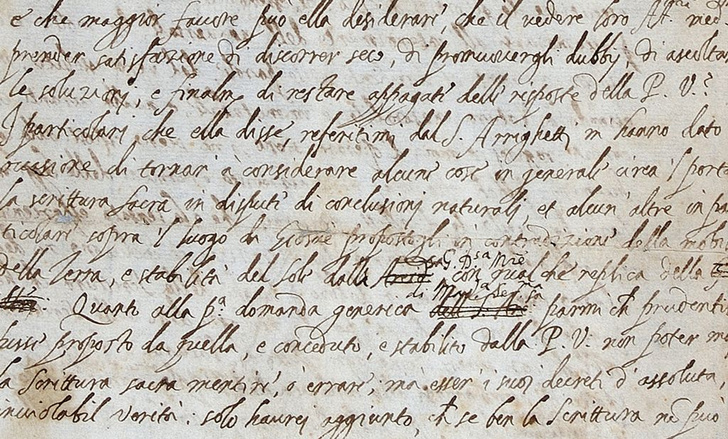 e che maggior favore può ella desiderare, che il vedere loro Alt.ze med
prender satisfazione di discorrer seco, di promuovergli dubby, di ascoltar
le soluzioni, e finalm. di restare appagati delle risposte della P. V.?
I particolari che ella disse, referitimi dal S. Arrighetti, m'hanno dato
occasione di tornar' à considerare alcune cose in generale circa 'l porta
la scrittura sacra in dispute di conclusioni naturali, et alcun' altre in par
ticolare sopra 'l luogo di Giosuè propostogli in contradizione della mobi
della Terra, e stabilità del Sole dalla G. D.sa M.re con qualche replica della
di M.ma Ser.ma
Quanto alla p.a domanda generica parmi ch' prudentis
fusse proposto da quella, e conceduto, e stabilito dalla P. V. non poter ma
la Scrittura sacra mentire, ò errare, ma esser' i suoi decreti d'assoluta
inviolabil verità: solo haurei aggiunto, ch' se ben la Scrittura nō può